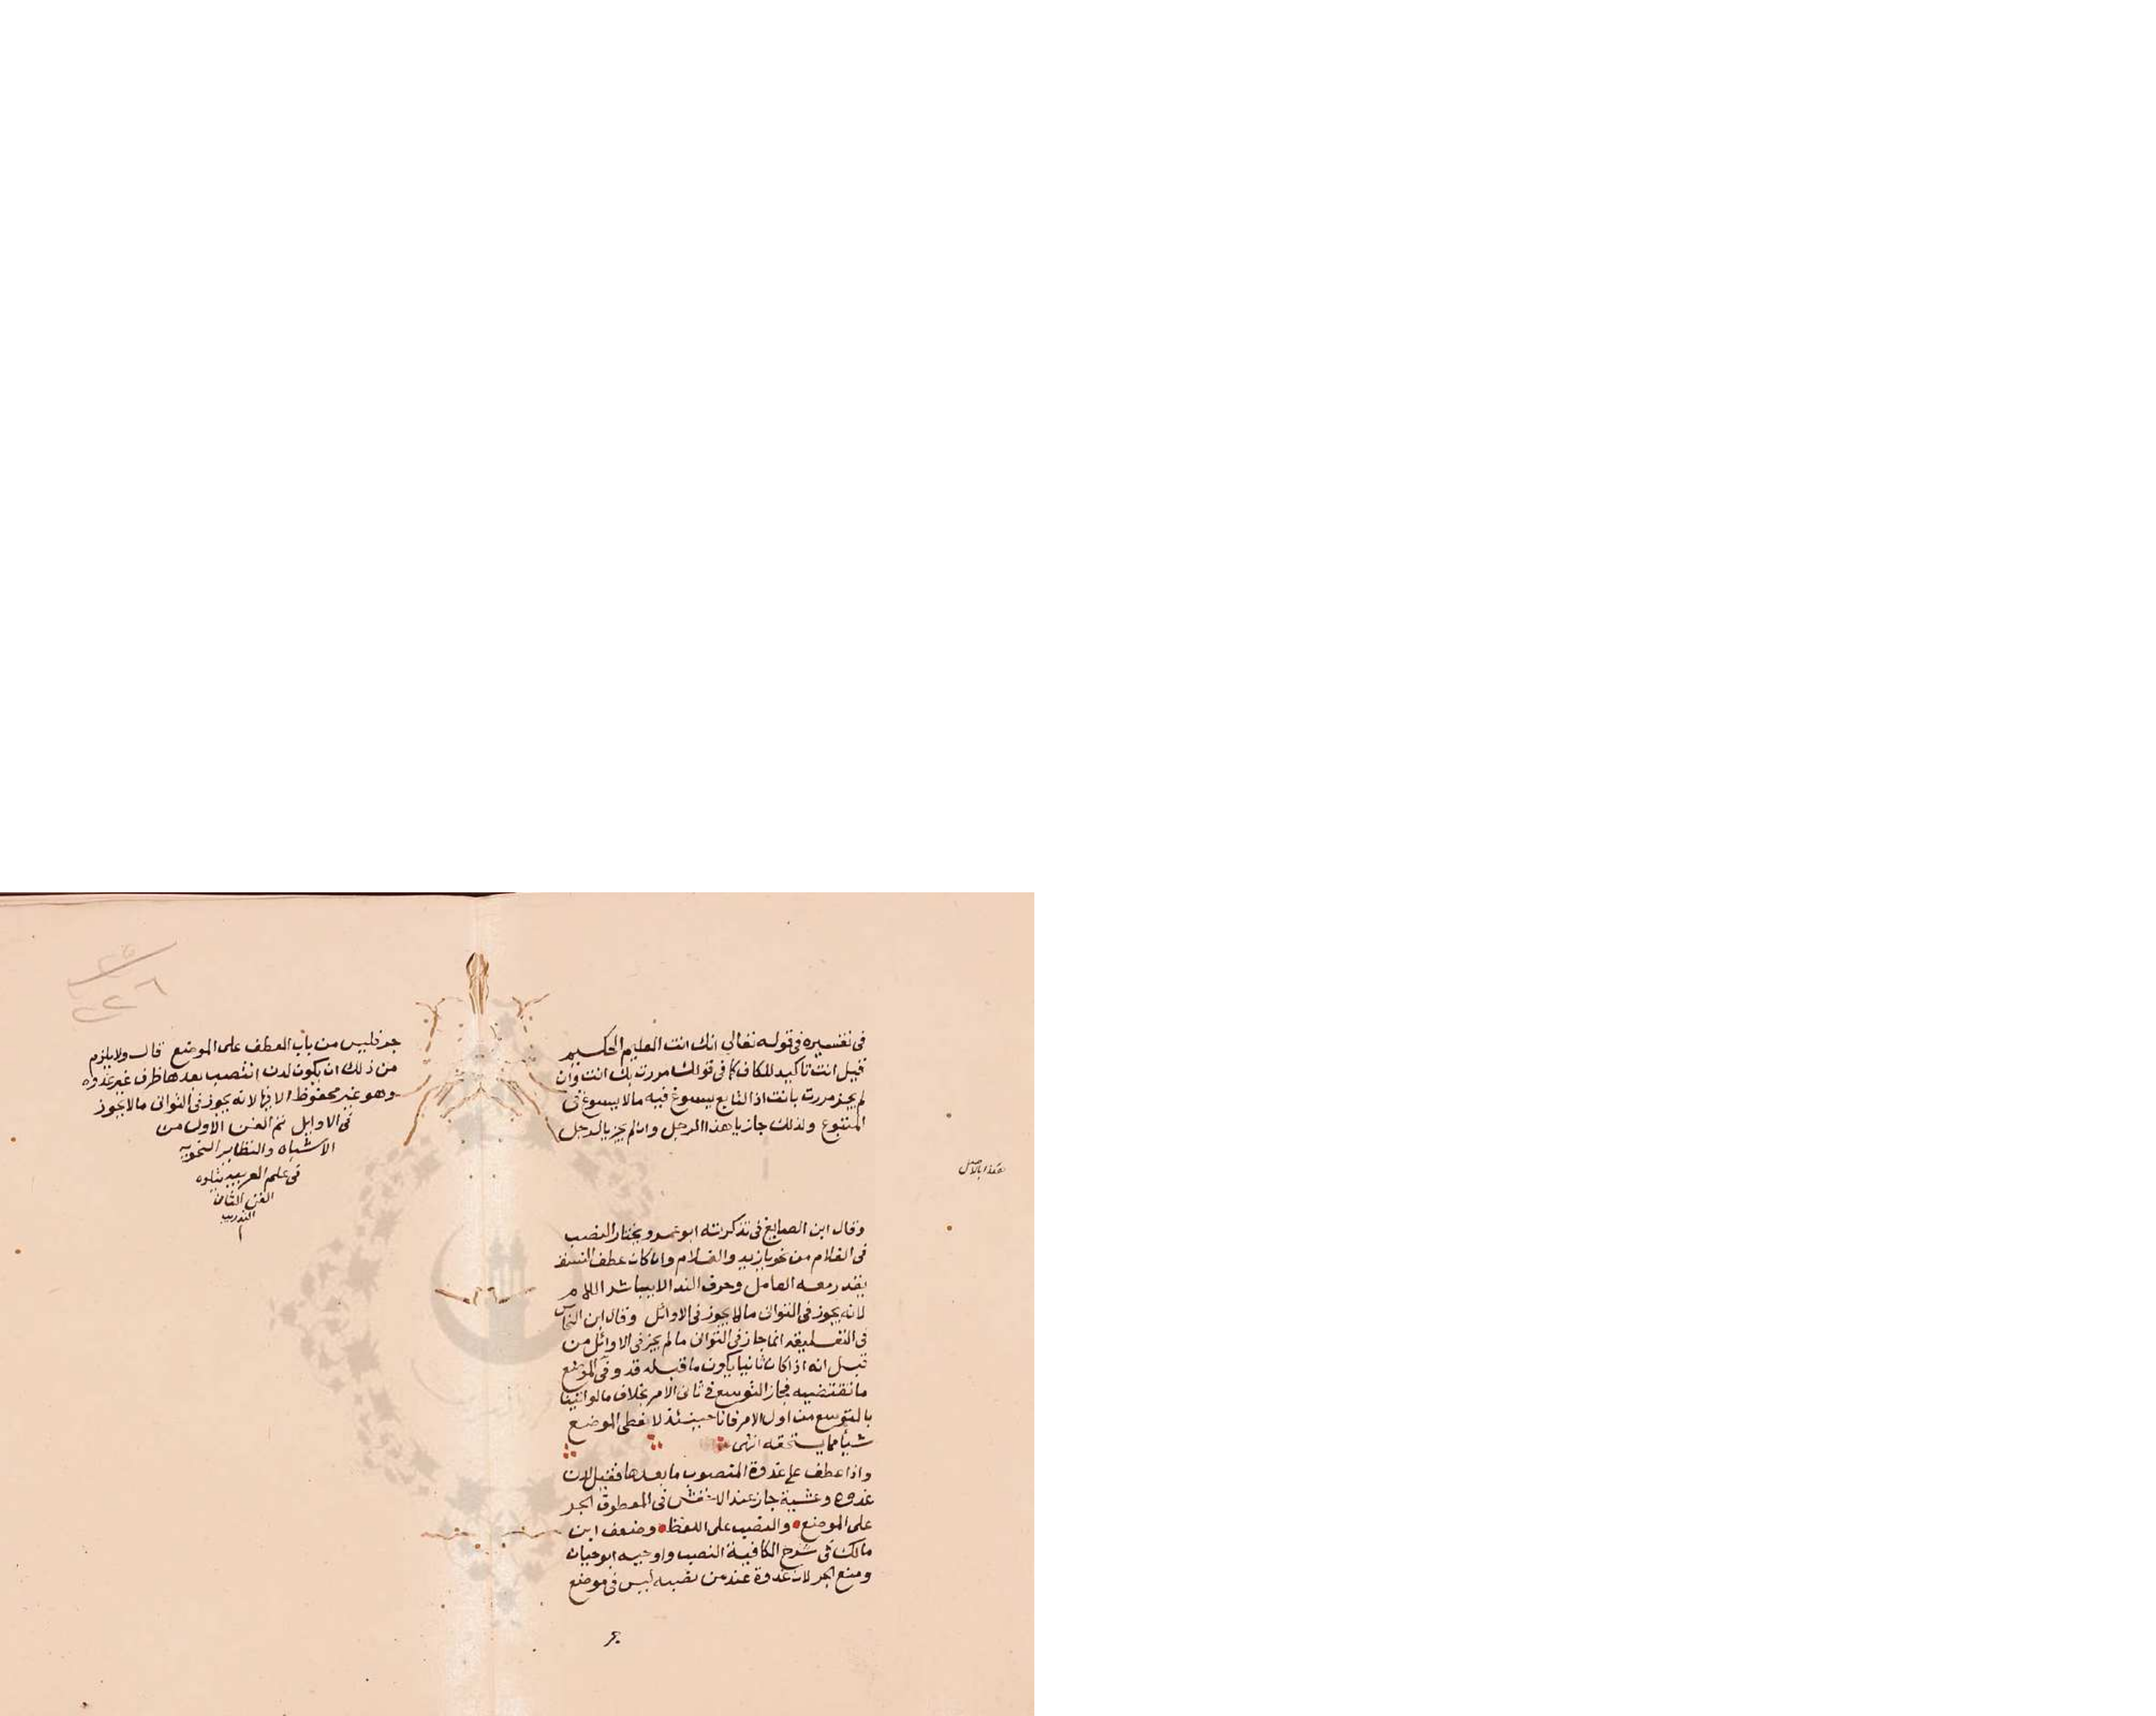 فى تفسيره فى قوله تعالى انك انت العليم الحكيم
قيل انت تاكيد للكاف كما فى قولك مررت بك انت وان
لم يجز مررت بانت اذ التابع يسوغ فيه مالا يسوغ فى
المتبوع ولذلك جاز يا هذا الرجل وان لم يجز يا الرجل
وقال ابن الصايغ فى تذكرته ابو عمرو يختار النصب
فى الغلام من نحو يا زيد والغلام وان كان عطف النسق
يقدر معه العامل وحرف الندا لا يباشر اللام
لانه يجوز فى الثوانى مالا يجوز فى الاوائل وقال ابن النحاس
فى التعليقه انما جاز فى الثوانى ما لم يجز فى الاوائل من
قبل انه اذا كان ثانيا يكون ما قبله قد وفى الموضع
ما تقتضيه فجاز التوسع فى ثانى الامر بخلاف ما لو اتينا
بالتوسع من اول الامر فانا حينئذ لا نعطى الموضع
شيأ مما يستحقه انتهى
واذا عطف على غدوة المنصوب ما بعدها فقيل لدن
غدوه وعشية جاز عند الاخفش فى المعطوف الجر
على الموضع والنصب على اللفظ وضعف ابن
مالك فى شرح الكافية النصب واوجبه ابو حيان
ومنع الجر لان غدوة عند من نصبه ليس فى موضع
جر فليس من باب العطف على الموضع قال ولا يلزم
من ذلك ان يكون لدن انتصب بعدها ظرف غير غدوه
وهو غير محفوظ الا فيها لانه يجوز فى الثوانى مالا يجوز
فى الاوايل تم الفن الاول من
الاشباه والنظاير النحويه
فى علم العربيه يتلوه
الفن الثانى
التدريب